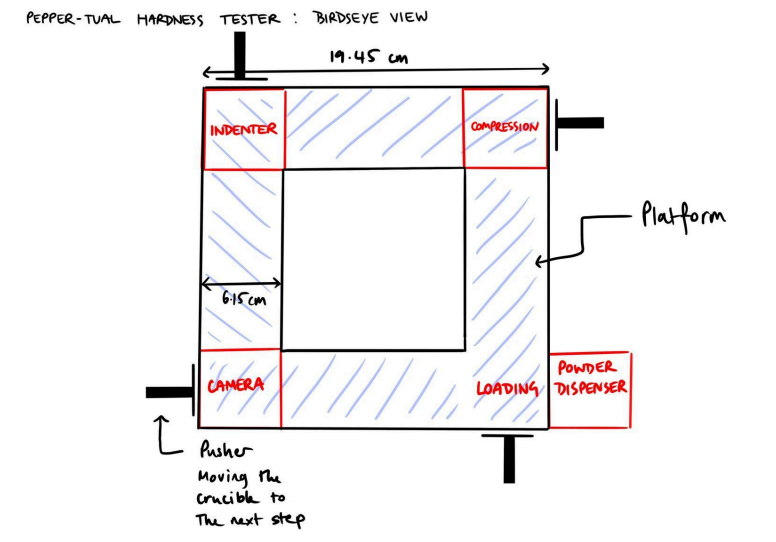 PEPPER-TUAL HARDNESS TESTER : BIRDSEYE VIEW
19.45 cm
INDENTER
COMPRESSION
Platform
6.15 cm
CAMERA
LOADING
POWDER
DISPENSER
Pusher
Moving the
crucible to
The next step